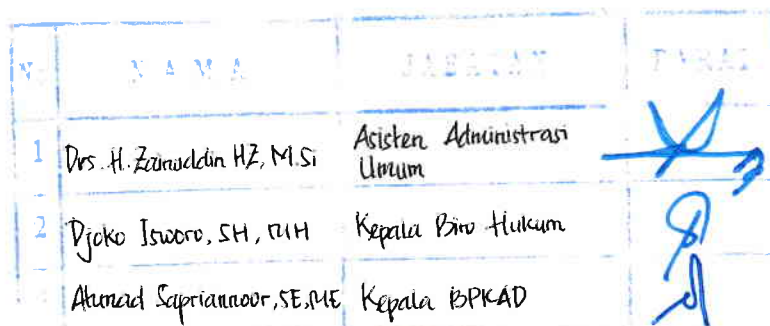 No NAMA JABATAN PARAF
1 Drs. H. Zainuddin HZ, M.Si Asisten Administrasi
Umum
2 Djoko Isworo, SH, MH Kepala Biro Hukum
Ahmad Sapriannoor, SE, ME Kepala BPKAD